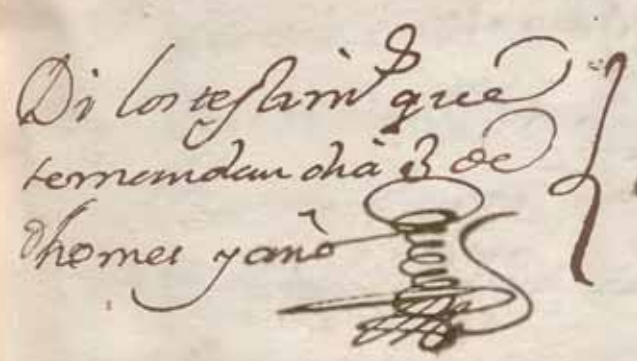 Di los testim.os que
se me mandan dhã 3 de
dho mes y año